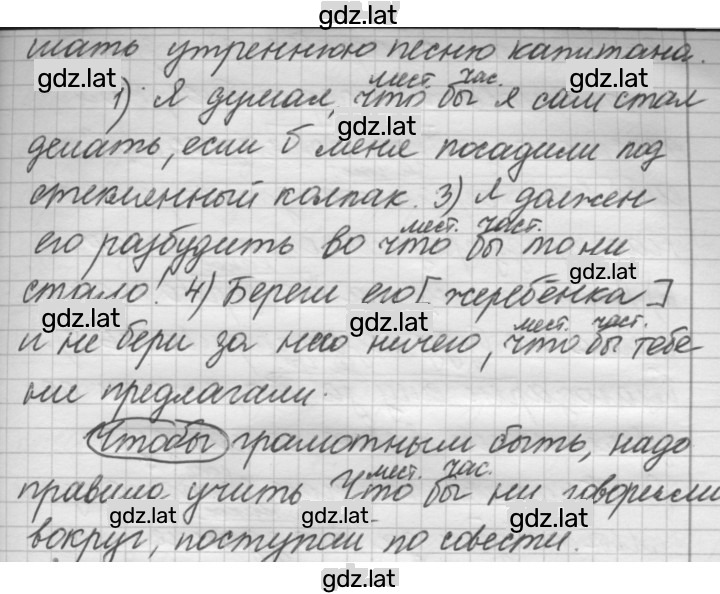 gdz.lat
шать утреннюю песню капитана.
gdz.lat мест. час. gdz.lat
1) Я думал, что бы я сам стал
gdz.lat
делать, если б меня посадили под
стеклянный колпак. 3) Я должен
мест. част.
его разбудить во что бы то ни
gdz.lat
стало! 4) Береги его [жеребёнка]
gdz.lat gdz.lat мест. част.
и не бери за него ничего, что бы тебе
ни предлагали.
Чтобы грамотным быть, надо
мест. час.
правила учить Что бы ни говорили
gdz.lat gdz.lat gdz.lat
вокруг, поступай по совести.
gdz.lat